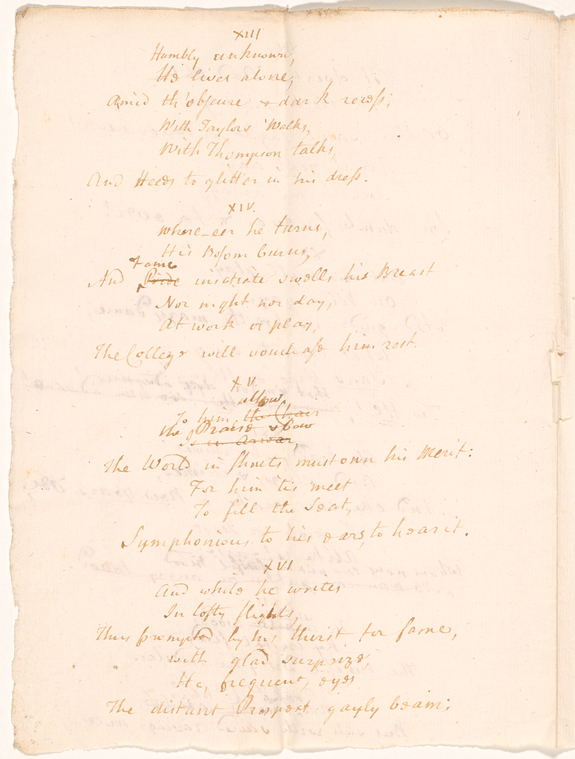 XIII
Humbly unknown,
He lives alone,
Amid th' obscure & dark recess;
With Taylors Walks,
With Thompson talks,
And Heeds to glitter in his dress.
XIV.
where-eer he turns,
His Bosom burns,
Fame
And Pride insatiate swells his Breast
Nor night nor day,
At work or play,
The Colleges will vouchsafe him rest.
XV.
allow
To him the Chair
the Praise & Bow
The World in must own his Merit:
For him tis meet
To fill the Seat,
Symphonious to his ears, to hear it.
XVI
And while he writes
In lofty flights,
Thus prompted by his thirst for fame,
with glad surprize
He, frequent, eyes
The distant Prospect gayly beam;